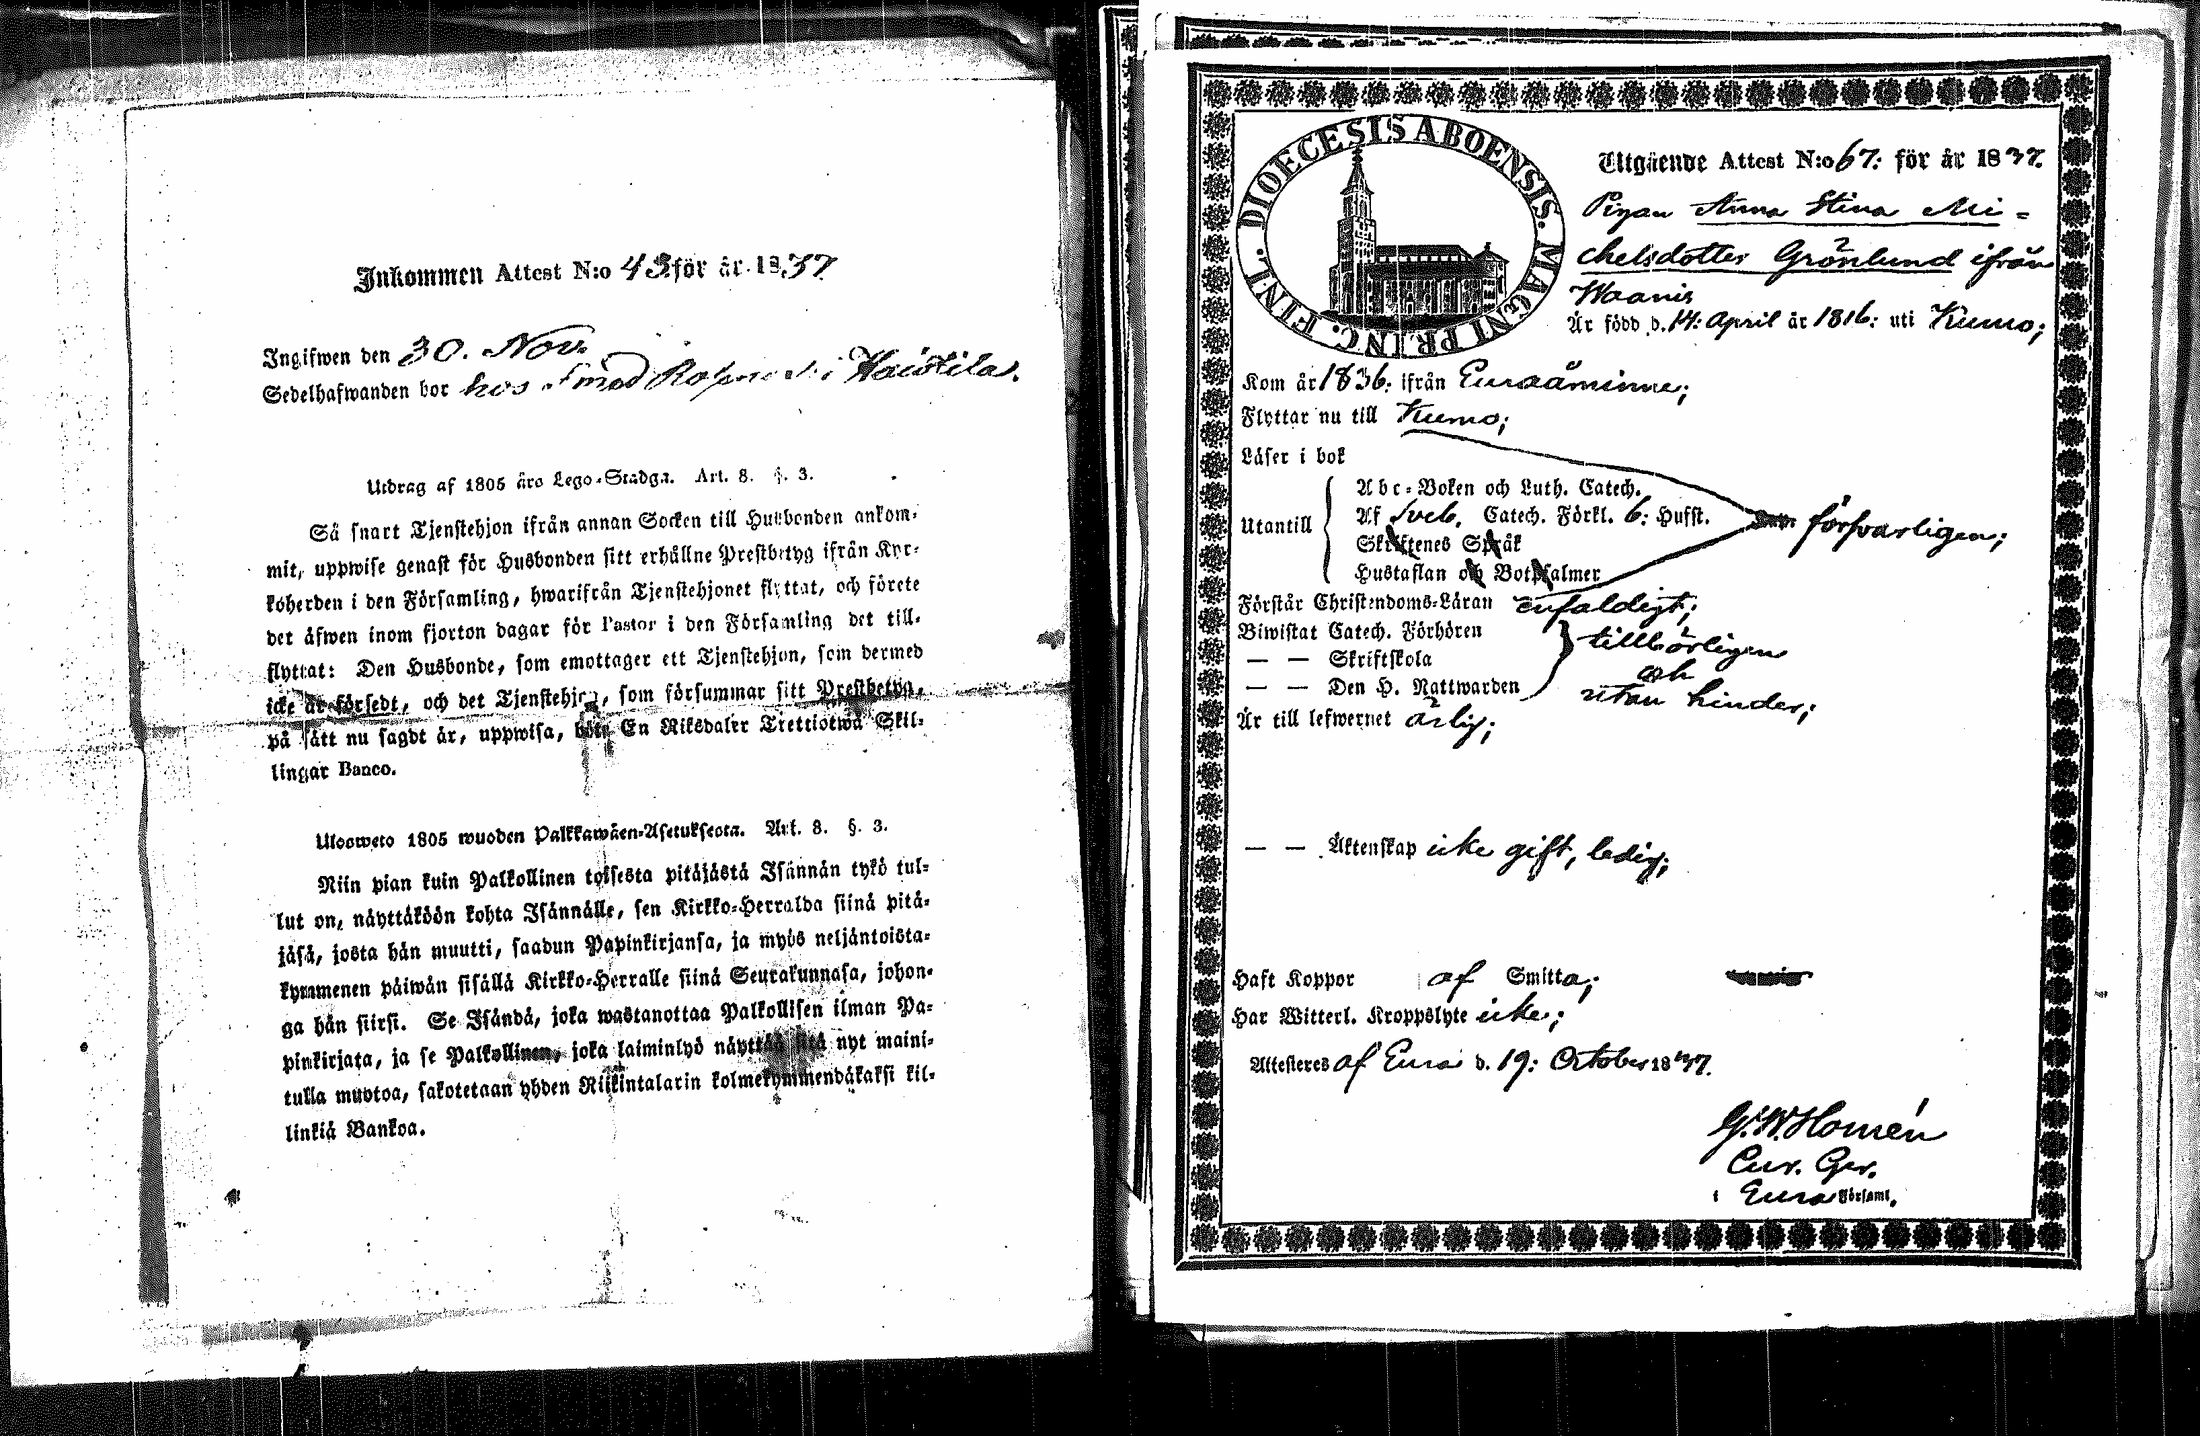 Inkommen Attest N:o 43 för år 1837
Ingifwen den 30. Nov.
Sedelhafwanden bor hos Smed i Haistila.
Utdrag af 1805 års Lego-Stadga. Art. 8. §. 3.
Så snart Tjenstehjon ifrån annan Socken till Husbonden ankom-
mit, uppwise genast för Husbonden sitt erhållne Prestbetyg ifrån Kyr-
koherden i den Församling, hwarifrån Tjenstehjonet flyttat, och förete
det äfwen inom fjorton dagar för Pastor i den Församling det till-
flyttat: Den Husbonde, som emottager ett Tjenstehjon, som dermed
icke är försedt, och det Tjenstehjon, som försummar sitt Prestbetyg,
på sätt nu sagdt är, uppwisa, böte En Riksdaler Trettiotwå Skil-
lingar Banco.
Ulosweto 1805 wuoden Palkkawäen-Asetuksesta. Art. 8. §. 3.
Niin pian kuin Palkollinen toisesta pitäjästä Isännän tykö tul-
lut on, näyttäköön kohta Isännälle, sen Kirkko-Herralda siinä pitä-
jäsä, josta hän muutti, saadun Papinkirjansa, ja myös neljäntoista-
kymmenen päiwän sisällä Kirkko-Herralle siinä Seurakunnasa, johon-
ga hän siirsi. Se Isändä, joka wastanottaa Palkollisen ilman Pa-
pinkirjata, ja se Palkollinen, joka laiminlyö näyttää sitä nyt maini-
tulla muotoa, sakotetaan yhden Riikintalarin kolmekymmendäkaksi kil-
linkiä Bankoa.
DIOECESIS ABOENSIS. MAGNI PRINC. FINL.
Utgående Attest N:o 67: för år 1837.
Pigan Anna Stina Mi-
chelsdotter Grönlund ifrån
Waanis
Är född d. 14: April år 1816: uti Kumo;
Kom år 1836: ifrån Euraåminne;
Flyttar nu till Kumo;
Läser i bok
Utantill
Abc-Boken och Luth. Catech.
Af Sveb. Catech. Förkl. 6: Hufst.
Skriftenes Språk
Hustaflan och Botpsalmer
försvarligen;
Förstår Christendoms-Läran enfaldigt;
Biwistat Catech. Förhören
— — Skriftskola
— — Den H. Nattwarden
tillbörligen
och
utan hinder;
Är till lefwernet ärlig;
— — Äktenskap icke gift, ledig;
Haft Koppor af Smitta;
Har Witterl. Kroppslyte icke;
Attesteres af Eura d. 19: October 1837.
G. W. Homén
Cur. Ger.
i Eura Församl.